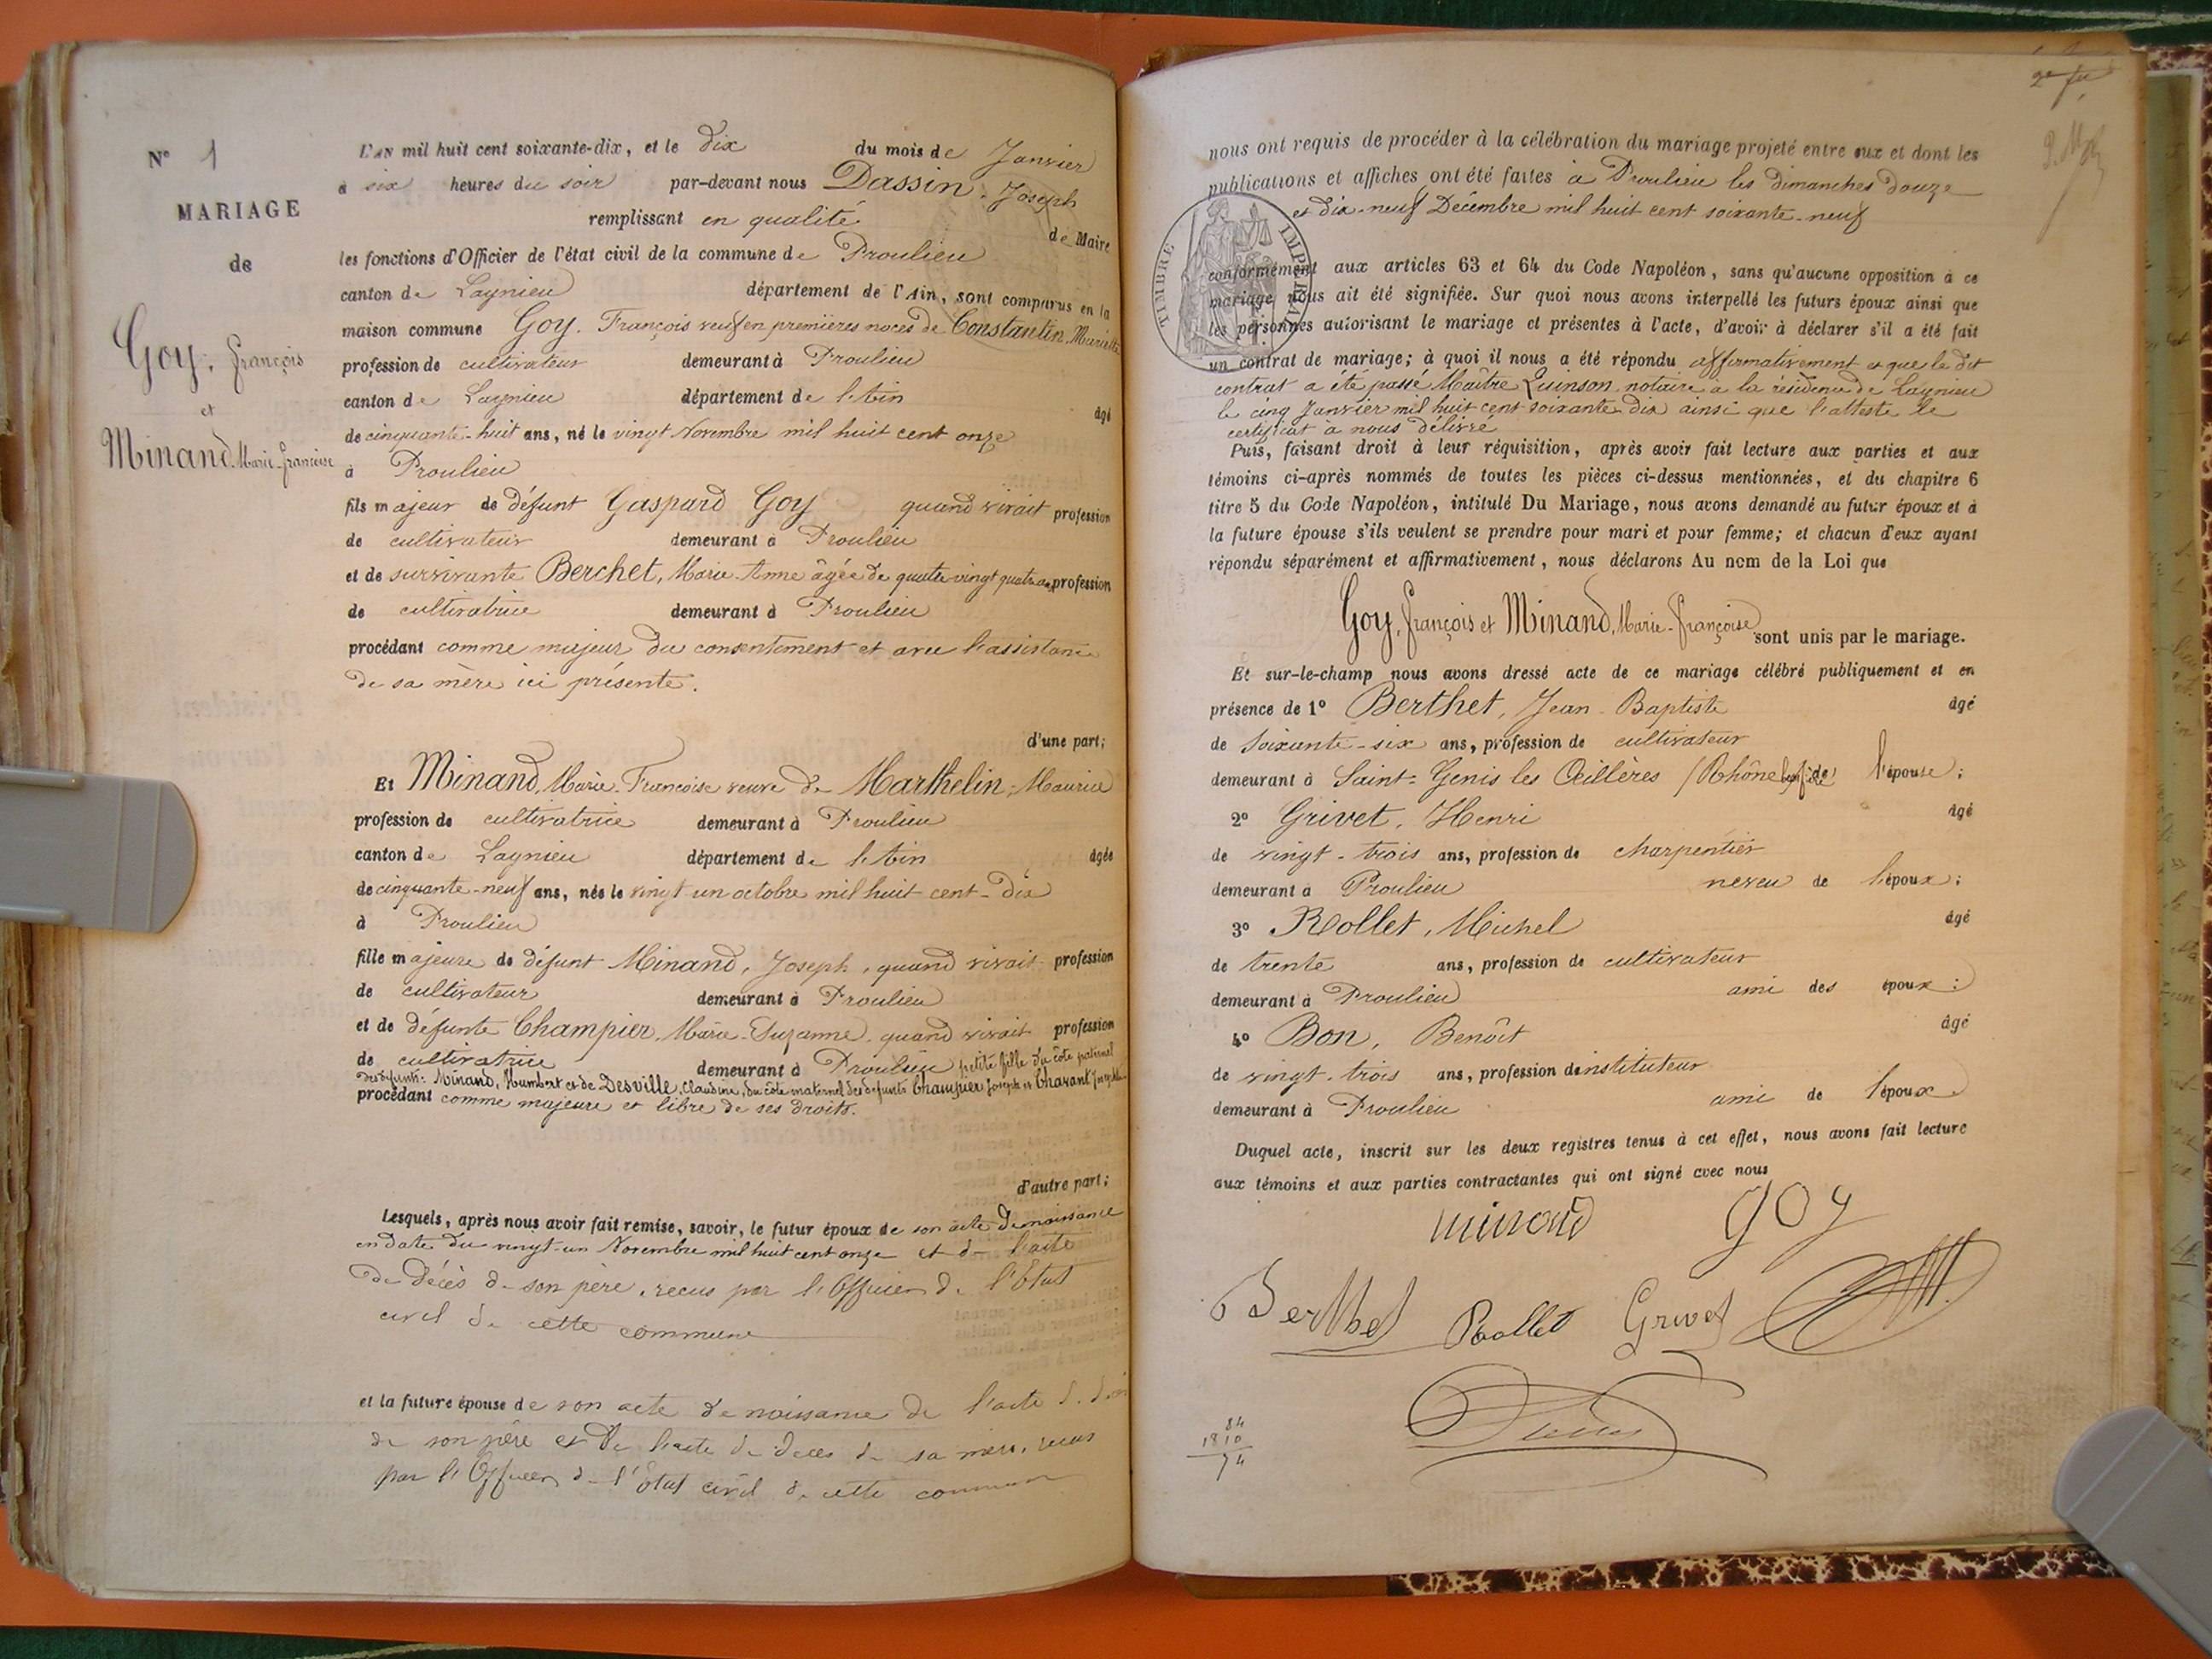 N° 1
MARIAGE
de
Goy, François
et
Minand Marie-Françoise
L'AN mil huit cent soixante-dix, et le dix du mois de Janvier
à six heures du soir par-devant nous Dassin, Joseph
remplissant en qualité de Maire
les fonctions d'Officier de l'état civil de la commune de Proulieu
canton de Lagnieu département de l'Ain, sont comparus en la
maison commune Goy, François veuf en premières noces de Constantin, Mariette
profession de cultivateur demeurant à Proulieu
canton de Lagnieu département de l'Ain âgé
de cinquante-huit ans, né le vingt Novembre mil huit cent onze
à Proulieu
fils majeur de défunt Gaspard Goy quand vivait profession
de cultivateur demeurant à Proulieu
et de survivante Berchet, Marie-Anne âgée de quatre vingt quatre ans profession
de cultivatrice demeurant à Proulieu
procédant comme majeur du consentement et avec l'assistance
de sa mère ici présente.
d'une part;
Et Minand, Marie-Françoise veuve de Marthelin, Maurice
profession de cultivatrice demeurant à Proulieu
canton de Lagnieu département de l'Ain âgée
de cinquante-neuf ans, née le vingt-un octobre mil huit cent-dix
à Proulieu
fille majeure de défunt Minand, Joseph, quand vivait profession
de cultivateur demeurant à Proulieu
et de défunte Champier, Marie-Suzanne, quand vivait profession
de cultivatrice demeurant à Proulieu petite fille du côté paternel
des défunts: Minand, Humbert et de Desville, Claudine, du côté maternel des défunts Champier Joseph et Chavant
procédant comme majeure et libre de ses droits.
d'autre part;
Lesquels, après nous avoir fait remise, savoir, le futur époux de son acte de naissance
en date du vingt-un Novembre mil huit cent onze et de l'acte
de décès de son père, reçus par l'Officier de l'État
civil de cette commune
et la future épouse de son acte de naissance de l'acte de
de son père et de l'acte de décès de sa mère, reçus
par l'Officier de l'État civil de cette commune
2e fu
nous ont requis de procéder à la célébration du mariage projeté entre eux et dont les
publications et affiches ont été faites à Proulieu les dimanches douze
et dix-neuf Décembre mil huit cent soixante-neuf
TIMBRE IMPERIAL
conformément aux articles 63 et 64 du Code Napoléon, sans qu'aucune opposition à ce
mariage nous ait été signifiée. Sur quoi nous avons interpellé les futurs époux ainsi que
les personnes autorisant le mariage et présentes à l'acte, d'avoir à déclarer s'il a été fait
un contrat de mariage; à quoi il nous a été répondu affirmativement et que le dit
contrat a été passé Maître Quinson notaire à la résidence de Lagnieu
le cinq Janvier mil huit cent soixante dix ainsi que l'atteste le
certificat à nous délivré
Puis, faisant droit à leur réquisition, après avoir fait lecture aux parties et aux
témoins ci-après nommés de toutes les pièces ci-dessus mentionnées, et du chapitre 6
titre 5 du Code Napoléon, intitulé Du Mariage, nous avons demandé au futur époux et à
la future épouse s'ils veulent se prendre pour mari et pour femme; et chacun d'eux ayant
répondu séparément et affirmativement, nous déclarons Au nom de la Loi que
Goy, François et Minand, Marie-Françoise sont unis par le mariage.
Et sur-le-champ nous avons dressé acte de ce mariage célébré publiquement et en
présence de 1° Berthet, Jean-Baptiste âgé
de soixante-six ans, profession de cultivateur
demeurant à Saint-Genis les Œillères (Rhône) de l'épouse;
2° Grivet, Henri âgé
de vingt-trois ans, profession de charpentier
demeurant à Proulieu neveu de l'époux;
3° Rollet, Michel âgé
de trente ans, profession de cultivateur
demeurant à Proulieu ami des époux;
4° Bon, Benoît âgé
de vingt-trois ans, profession d'instituteur
demeurant à Proulieu ami de l'époux.
Duquel acte, inscrit sur les deux registres tenus à cet effet, nous avons fait lecture
aux témoins et aux parties contractantes qui ont signé avec nous
minand Goy
Berthet Rollet Grivet
84
1810
74